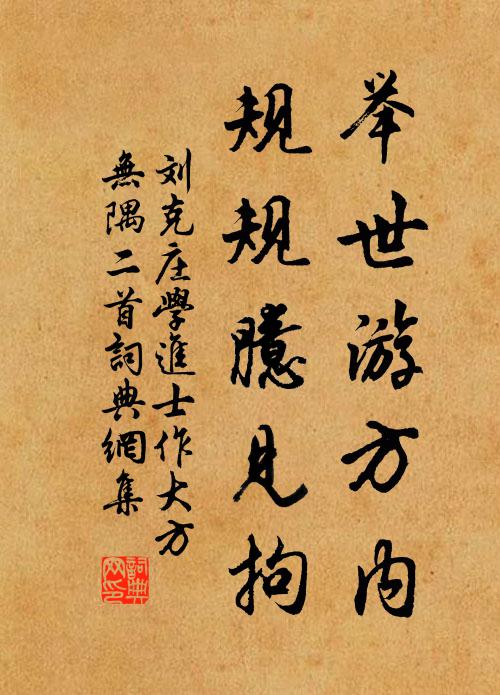 举世游方内
规规臆见拘
刘克庄學進士作大方
無隅二首詞典網集
詞典网印